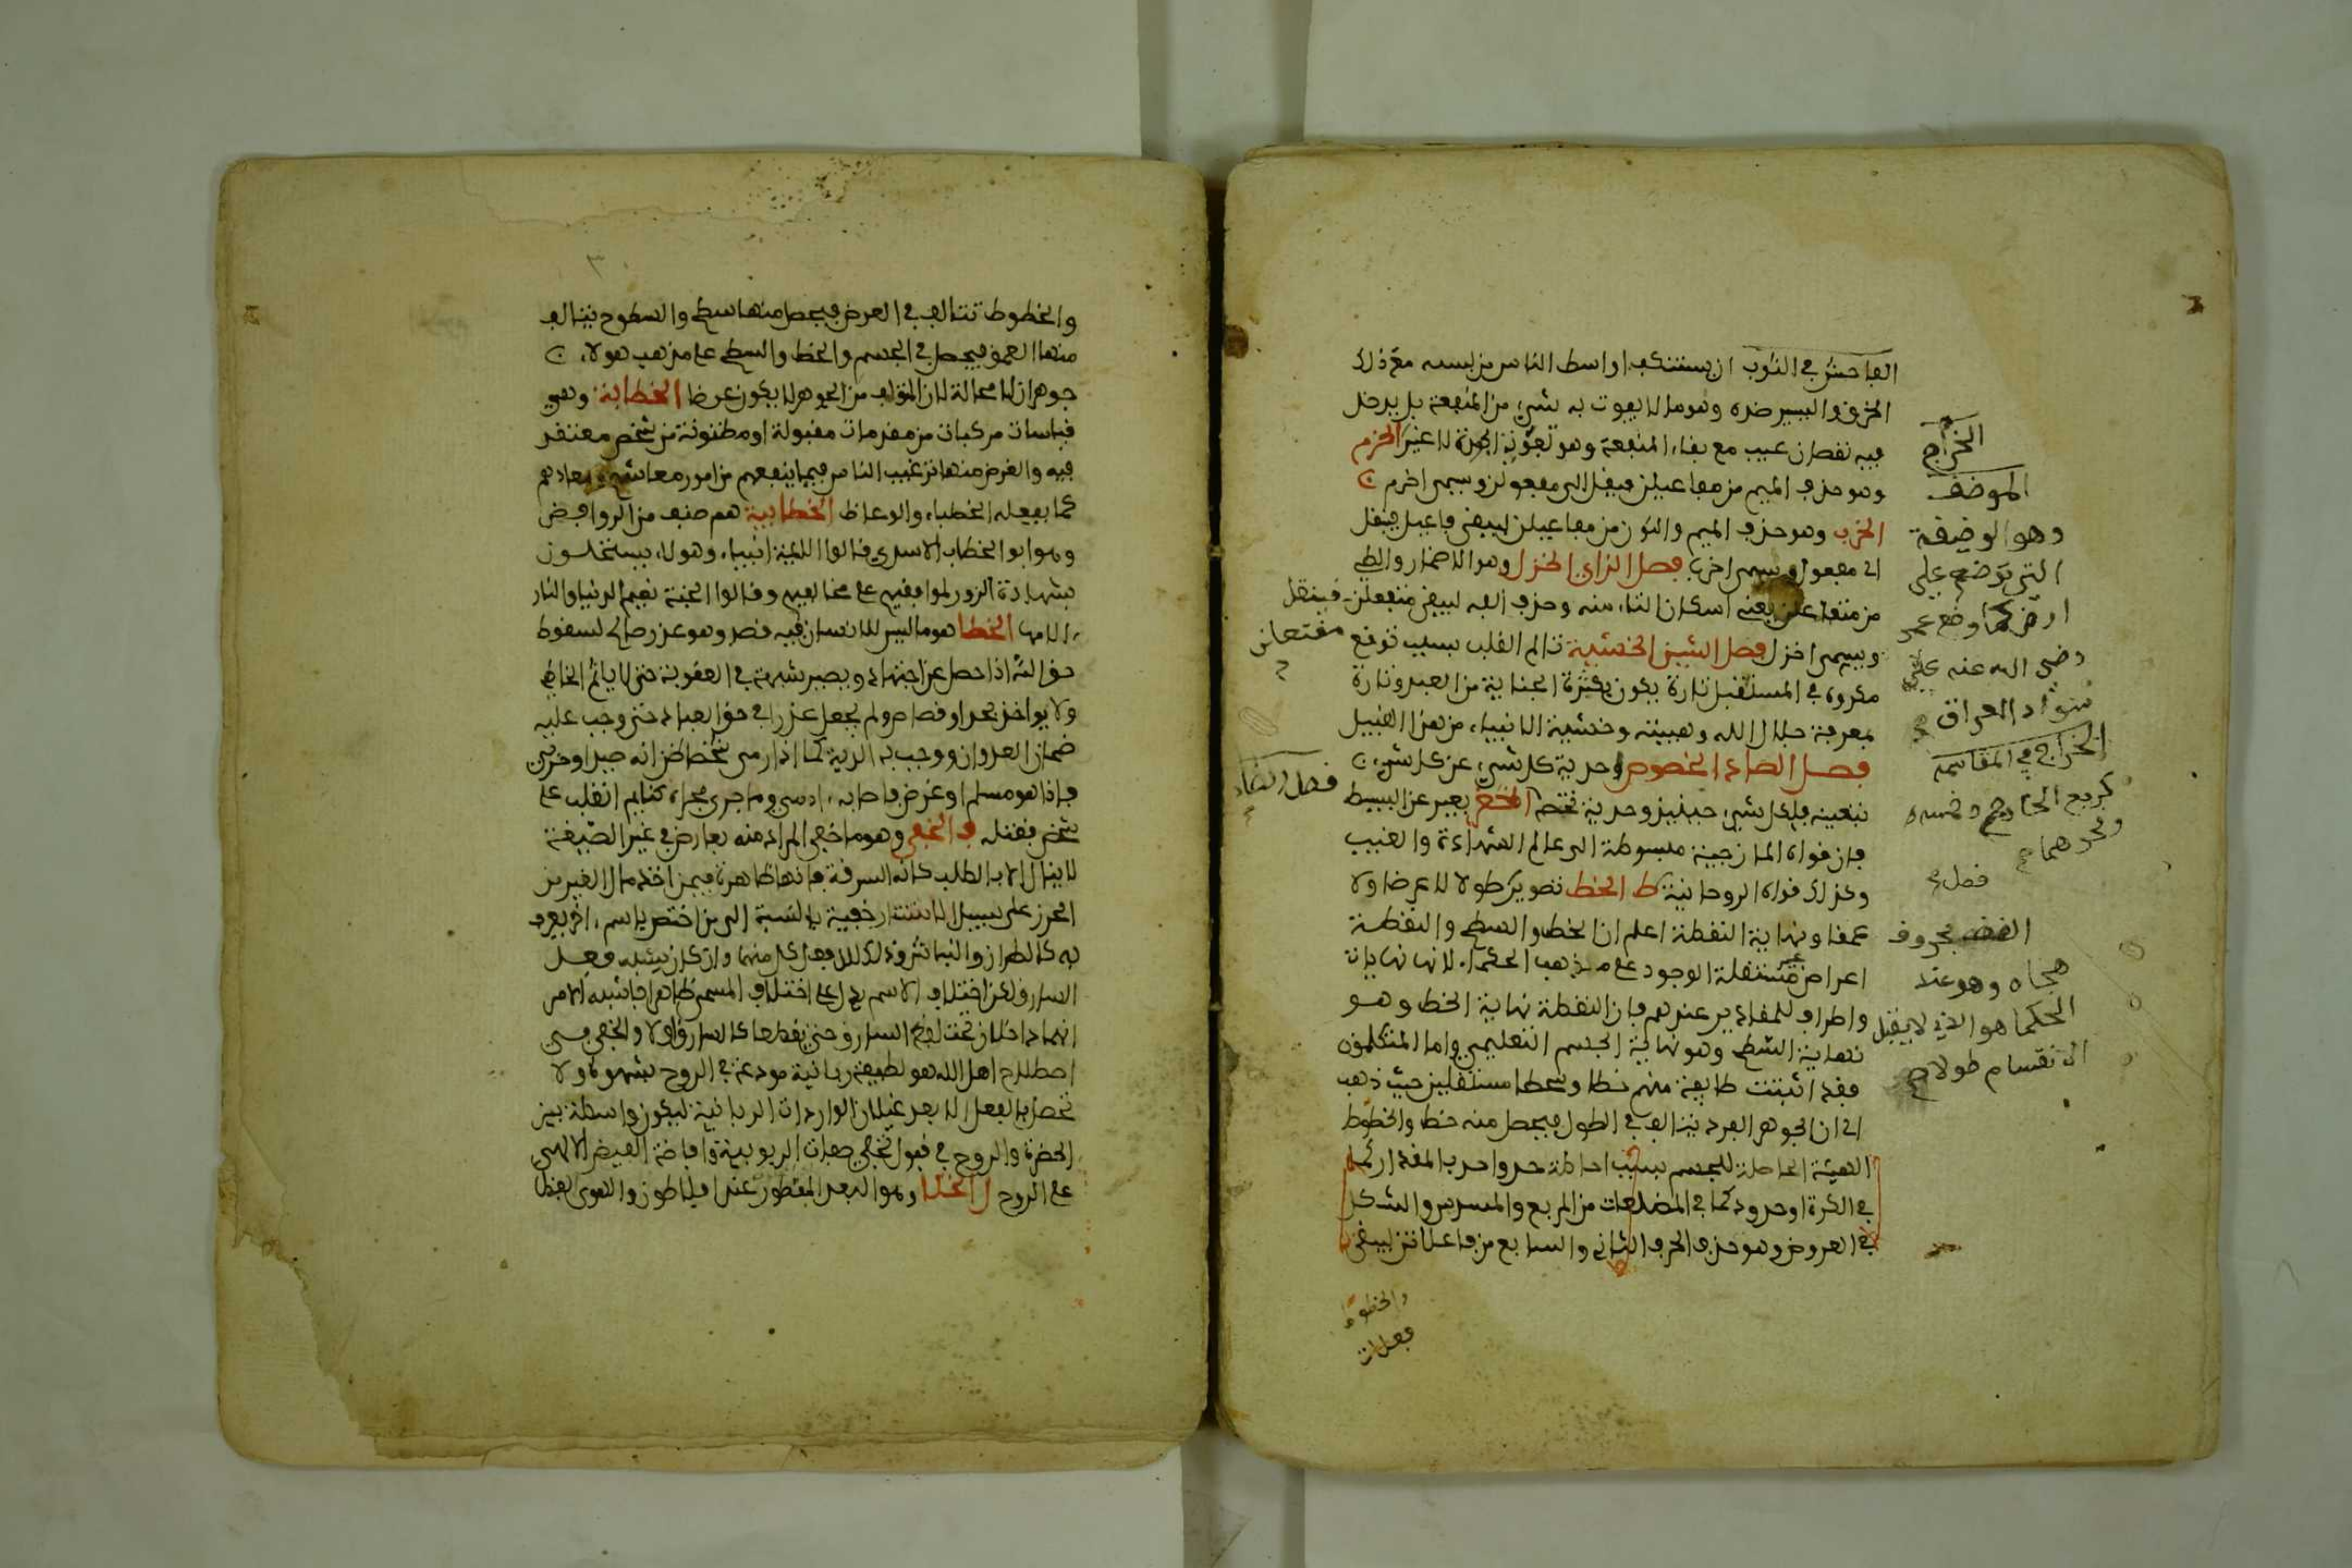 الفاحش في الثوب ان يستنكف اواسط الناس من لبسه مع ذلك
الخرق واليسير ضده وهو ما لا يفوت به شيء من المنفعة بل يدخل
فيه نقصان عيب مع بقاء المنفعة وهو تفويت الجودة لا غير الخرم
وهو حذف الميم من مفاعيلن فينقل الى مفعولن ويسمى اخرم
الخرب وهو حذف الميم والنون من مفاعيلن ليبقى فاعيل فينقل
الى مفعول ويسمى اخرب فصل الزاي الخزل وهو الاضمار والطي
من متفاعلن يعني اسكان التاء منه وحذف الفه ليبقى متفعلن فينقل
مفتعلن
ويسمى اخزل فصل الشين الخشية تالم القلب بسبب توقع
مكروه في المستقبل تارة يكون بكثرة الجناية من العبد وتارة
بمعرفة جلال الله وهيبته وخشية الانبياء من هذا القبيل
فصل الصاد الخصوص احدية كل شيء عن كل شيء
بتعينه فلكل شيء حينئذ وحدية تخصه الخضر يعبر عن البسيط
فصل الضاد
فان قواه المازجية مبسوطة الى عالم الشهادة والغيب
وكذلك قواه الروحانية ط الخط تصوير طولا لا عرضا ولا
عمقا ونهاية النقطة اعلم ان الخط والسطح والنقطة
اعراض غير مستقلة الوجود على مذهب الحكماء لانها نهايات
واطراف للمقادير عندهم فان النقطة نهاية الخط وهو
نهاية السطح وهو نهاية الجسم التعليمي واما المتكلمون
فقد اثبتت طايفة منهم خطا وسطحا مستقلين حيث ذهب
الى ان الجوهر الفرد يتالف في الطول فيحصل منه خط والخطوط
الهيئة الحاصلة للجسم بسبب احاطة حد واحد بالمقدار كما
في الكرة او حدود كما في المضلعات من المربع والمسدس والشكل
في العروض وهو حذف الحرف الثاني والسابع من فاعلاتن ليبقى
والخطوط
فعلات
الخراج
الموضف
وهو الوضيفة
التي توضع على
ارض كما وضع عمر
رضى الله عنه على
سواد العراق
الخراج في المقاسمة
كربع الخارج وخمسه
ونحوهما
فصل
الخط بحروف
هجاه وهو عند
الحكما هو الذي لا يقبل
الانقسام طولا
والخطوط تتالف في العرض فيحصل منها سطح والسطوح يتالف
منها العمق فيحصل في الجسم والخط والسطح على مذهب هولاء
جوهران لا محالة لان المتولف من الجوهر لا يكون عرضا الخطابة وهي
قياسات مركبات من مقدمات مقبولة او مظنونة من شخص معتقد
فيه والغرض منها ترغيب الناس فيما ينفعهم من امور معاشهم ومعادهم
كما يفعله الخطباء والوعاظ الخطابية هم صنف من الروافض
وهو ابو الخطاب الاسدي قالوا الايمة انبياء وهولاء يستحلون
بشهادة الزور لموافقيهم على مخالفيهم وقالوا الجنة نعيم الدنيا والنار
الامها الخطا هو ما ليس للانسان فيه قصد وهو عذر صالح لسقوط
حق الله اذا حصل عن اجتهاد ويصير شبهة في العقوبة حتى لا ياثم الخاطي
ولا يواخذ بحد او قصاص ولم يجعل عذرا في حق العباد حتى وجب عليه
ضمان العدوان ووجب به الدية كما اذا رمى شخصا ظن انه صيد او حربي
فاذا هو مسلم او غرض فاصابه ادمي وما جرى مجراه كنايم انقلب على
شخص فقتله ف الخفي وهو ما خفي المراد منه بعارض في غير الصيغة
لا ينال الا بالطلب كاية السرقة فانها ظاهرة فيمن اخذ مال الغير من
الحرز على سبيل الاستتار خفية بالنسبة الى من اختص باسم اخر يعرف
به كالطرار والنباش وذلك لان فعل كل منهما وان كان يشبه فعل
السارق لكن اختلاف الاسم يدل على اختلاف المسمى ظاهرا فاشبه الامر
انهما داخلان تحت لفظ السارق حتى يقطعا كالسارق اولا والخفي في
اصطلاح اهل الله هو لطيفة ربانية مودعة في الروح بالقوة ولا
تحصل بالفعل الا بعد غلبان الواردات الربانية ليكون واسطة بين
الحضرة والروح في قبول تجلي صفات الربوبية وافاضة الفيض الالهي
على الروح ل الخلا وهو البعد المفطور عند افلاطون والقوى الفضا